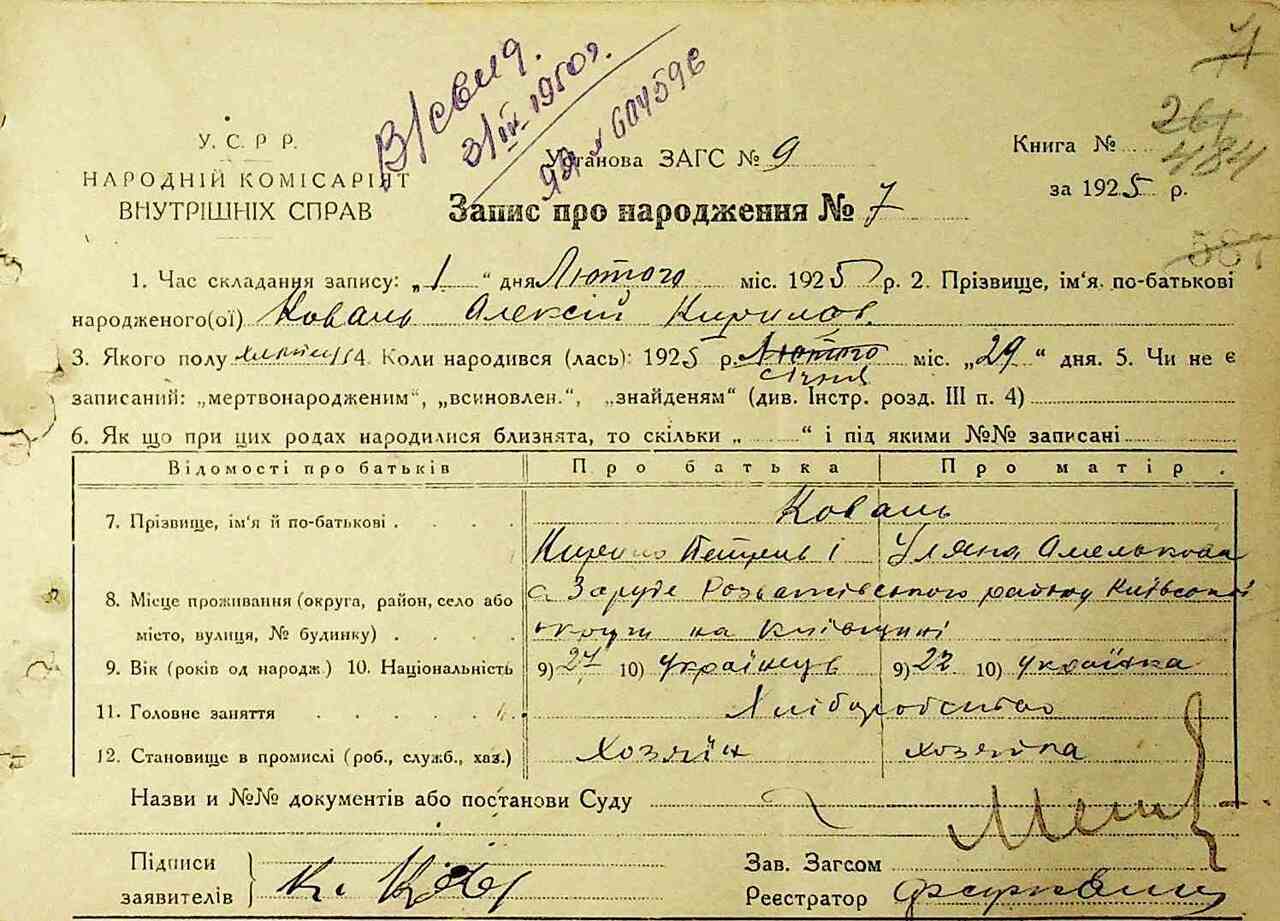 71
В/свид.
3/IV 1950 г.
ЯД № 604596
26/
484
У. С. Р Р.
НАРОДНІЙ КОМІСАРІЯТ
ВНУТРІШНІХ СПРАВ
Установа ЗАГС № 9
Книга №
за 1925 р.
Запис про народження № 7
1. Час складання запису: „1“ дня Лютого міс. 1925 р. 2. Прізвище, ім‘я по-батькові
народженого(ої) Коваль Алексій Кирилов.
3. Якого полу 4. Коли народився (лась): 1925 р. Лютого міс. „29“ дня. 5. Чи не є
січня
записаний: „мертвонародженим“, „всиновлен.“, „знайденям“ (див. Інстр. розд. III п. 4)
6. Як що при цих родах народилися близнята, то скільки „ “ і під якими №№ записані
Відомості про батьків Про батька Про матір.
7. Прізвище, ім‘я й по-батькові . . . . Коваль
Кирило Петрів і Уляна Амелькова
8. Місце проживання (округа, район, село або Заруде Розважівського району Київської
місто, вулиця, № будинку) . . . . округи на Київщині
9. Вік (років од народж.) 10. Національність 9) 27 10) Українець 9) 22 10) українка
11. Головне заняття . . . . . Хліборобство
12. Становище в промислі (роб., служб., хаз.) хозяїн хозяйка
Назви и №№ документів або постанови Суду
Підписи
заявителів
К. Коваль
Зав. Загсом
Реєстратор